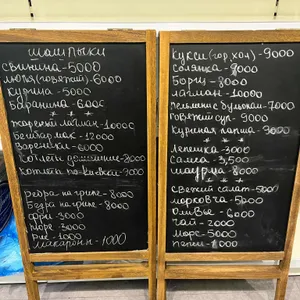 шашлыки
свинина-5000
люля(говяжий)-6000
курица-5000
баранина-6000
* * *
жареный лагман-10000
бешбармак-12000
вареники-6000
котлеты домашние-7000
котлета по-киевски-7000
ребра на гриле-8000
бедра на гриле-8000
фри-3000
пюре-3000
рис-1000
макароны-1000
кукси(гор,хол)-9000
солянка-8000
борщ-8000
лагман-10000
пельмени с бульоном-7000
говяжий суп-9000
куриная лапша-7000
* * *
лепешка-3000
самса-3,500
шаурма-8000
* * *
свежий салат-5000
морковча-5000
оливье-6000
чай-2000
морс-5000
пепси-